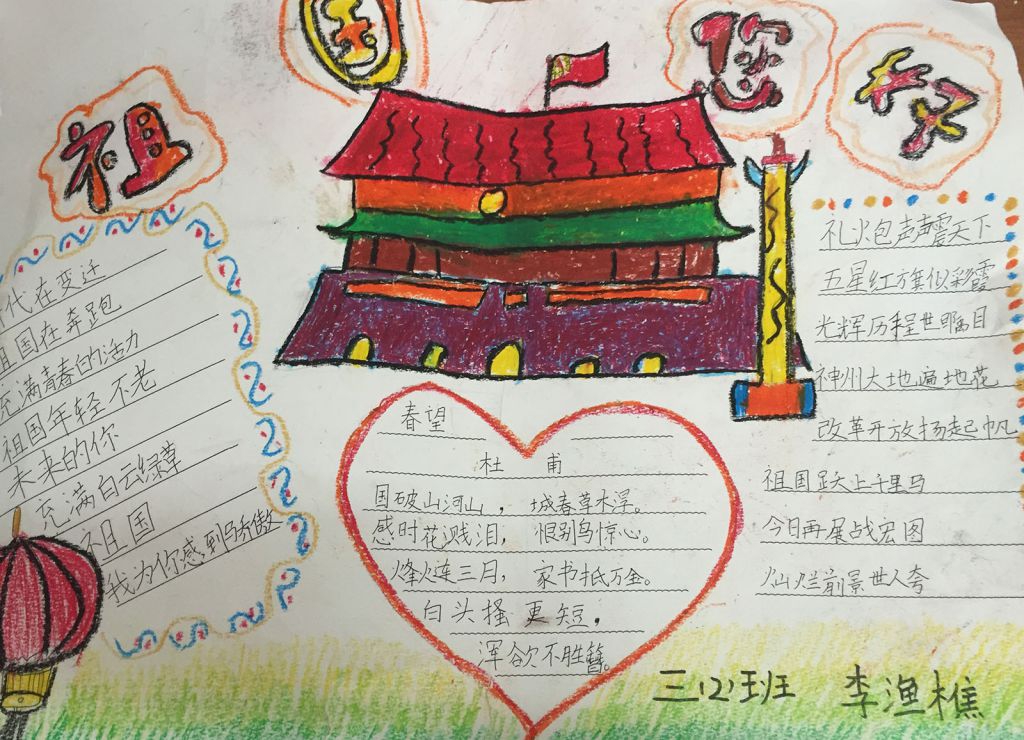 祖国您好
代在变迁
祖国在奔跑
充满青春的活力
祖国年轻不老
未来的你
充满白云绿草
祖国
我为你感到骄傲
春望
杜甫
国破山河山，城春草木浮。
感时花溅泪，恨别鸟惊心。
烽火连三月，家书抵万金。
白头搔更短，
浑欲不胜簪。
礼炮声声震天下
五星红旗似彩霞
光辉历程世瞩目
神州大地遍地花
改革开放扬起帆
祖国跃上千里马
今日再展战宏图
灿烂前景世人夸
三(2)班 李渔樵